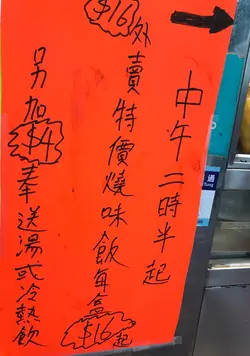 中午二時半起
$16
外賣特價燒味飯每盒$16起
另加$4奉送湯或冷熱飲